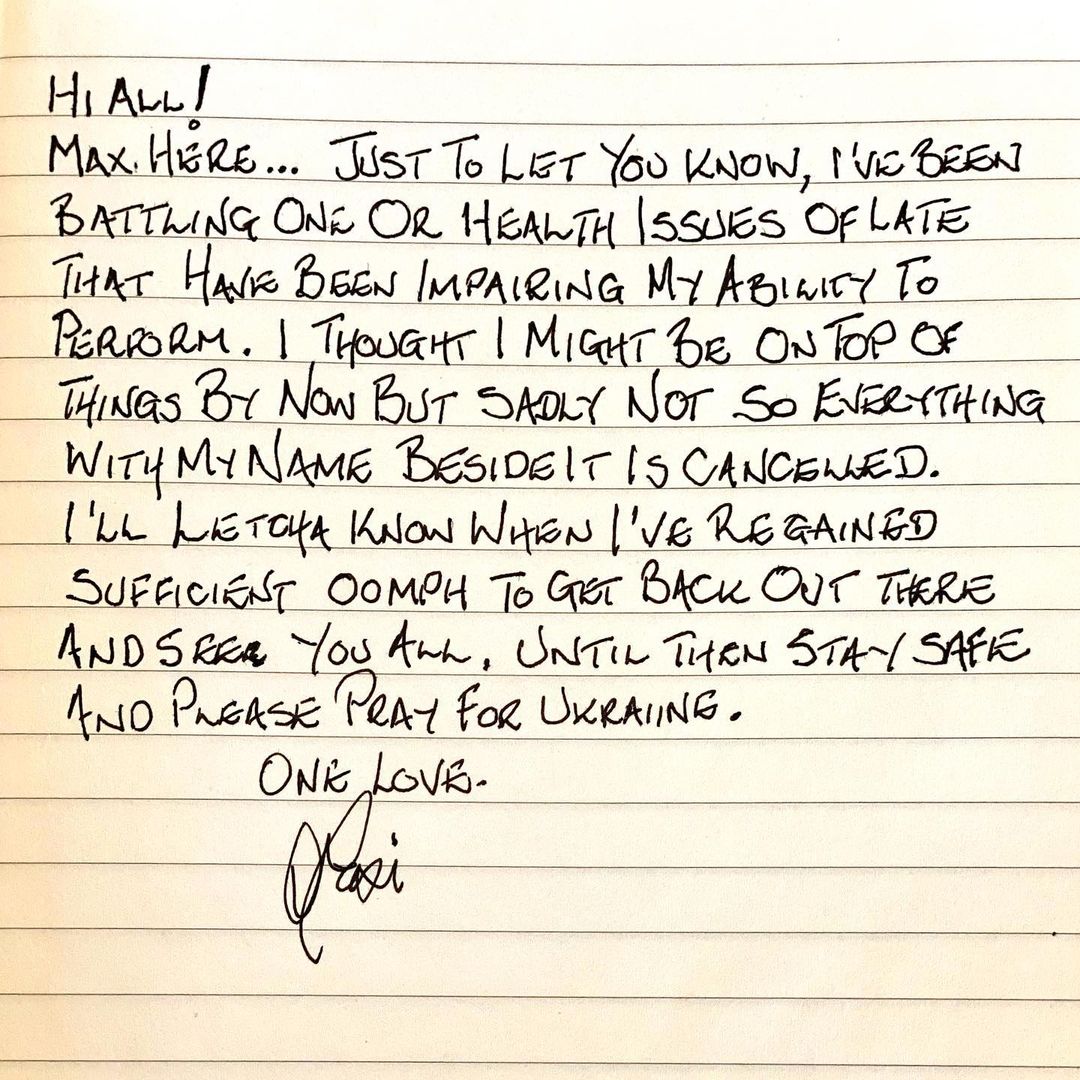 HI ALL!
MAX HERE... JUST TO LET YOU KNOW, I'VE BEEN
BATTLING ONE OR HEALTH ISSUES OF LATE
THAT HAVE BEEN IMPAIRING MY ABILITY TO
PERFORM. I THOUGHT I MIGHT BE ON TOP OF
THINGS BY NOW BUT SADLY NOT SO EVERYTHING
WITH MY NAME BESIDE IT IS CANCELLED.
I'LL LETCHA KNOW WHEN I'VE REGAINED
SUFFICIENT OOMPH TO GET BACK OUT THERE
AND SEE YOU ALL. UNTIL THEN STAY SAFE
AND PLEASE PRAY FOR UKRAIINE.
ONE LOVE.
Maxi